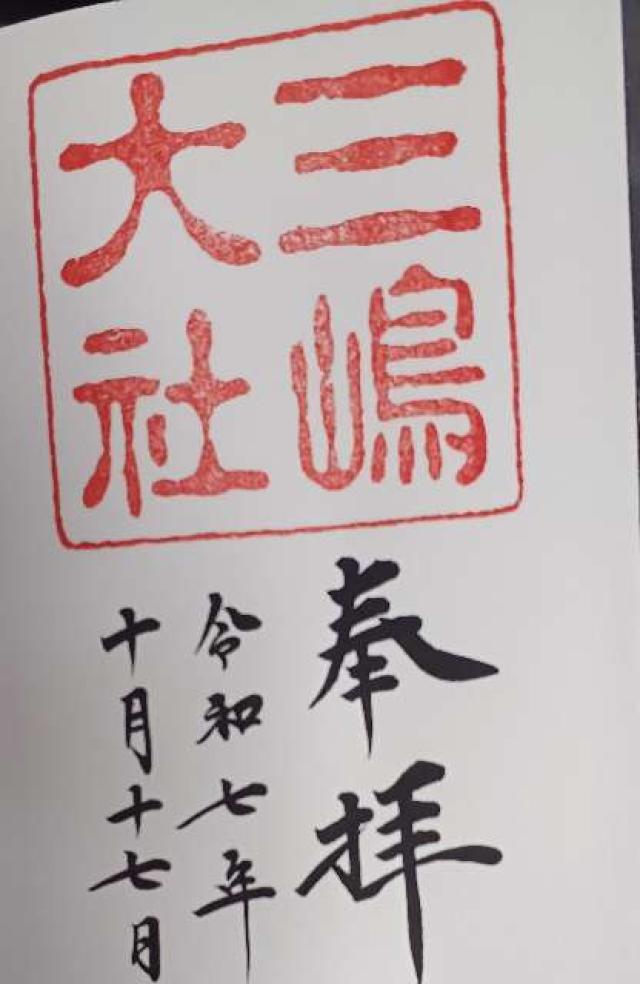 三嶋
大社
奉拝
令和七年
十月十七日